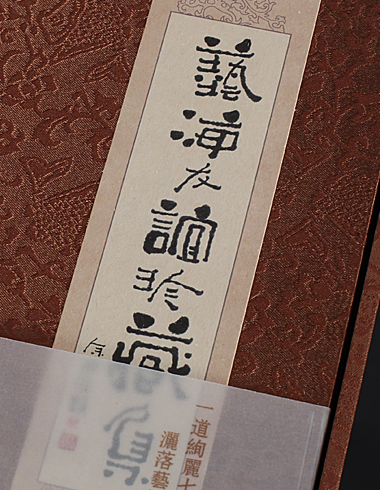 藝海友誼珍藏
一道絢麗七
灑落藝